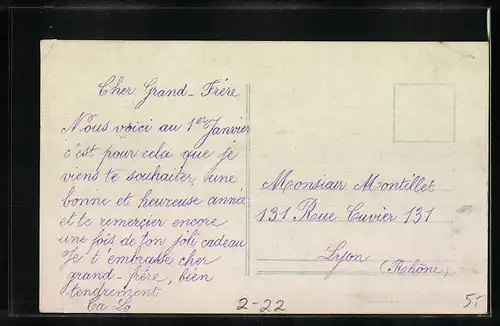 Cher Grand-Frére
Nous voici au 1er Janvier
c'est pour cela que je
viens te souhaiter une
bonne et heureuse année
et te remerçier encore
une fois de ton joli cadeau
Je t'embrasse cher
grand-frére, bien
tendrement
Monsieur Montillet
131 Rue Cuvier 131
Lyon
(Rhône)
2-22
5.-